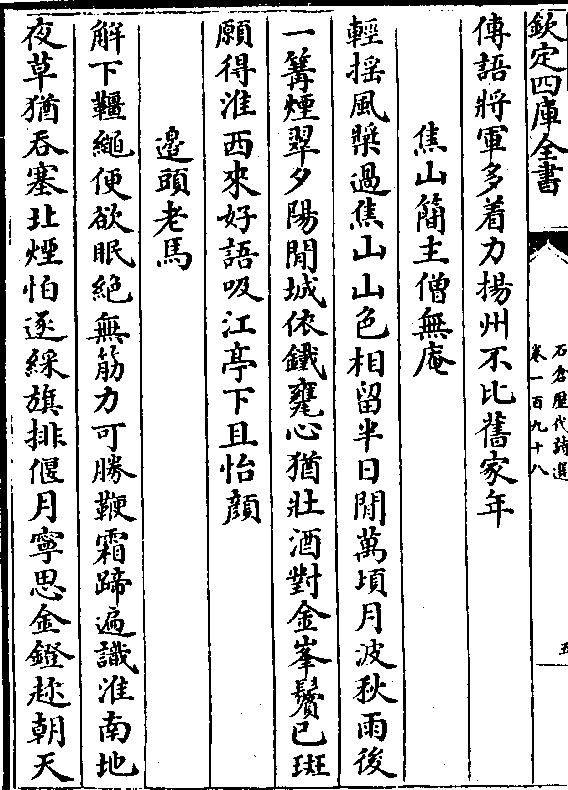 欽定四庫全書
石倉歷代詩選
卷一百九十八
五
傳語將軍多着力揚州不比舊家年
焦山簡主僧無庵
輕揺風槳過焦山山色相留半日閒萬頃月波秋雨後
一篝煙翠夕陽間城依鐵甕心猶壯酒對金峯鬢已斑
願得淮西來好語吸江亭下且怡顔
邊頭老馬
解下韁繩便欲眠絶無筋力可勝鞭霜蹄遍識淮南地
夜草猶吞塞北煙怕逐綵旗排偃月寧思金鐙趂朝天